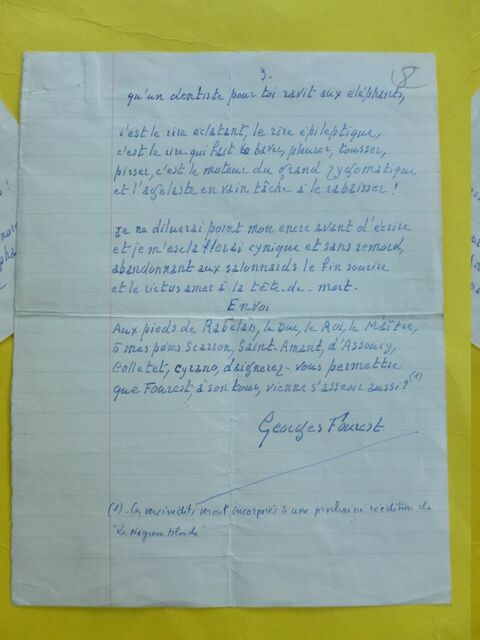 3.
qu'un dentiste pour toi ravit aux éléphants,
c'est le rire éclatant, le rire épileptique,
c'est le rire qui fait baver, pleurer, tousser,
pisser, c'est le moteur du grand zygomatique
et l'agélaste en vain tâche à le rabaisser !
Je ne diluerai point mon encre avant d'écrire
et je m'esclafferai cynique et sans remord,
abandonnant aux salonnards le fin sourire
et le rictus amer à la tête-de-mort.
Envoi
Aux pieds de Rabelais, le Duc, le Roi, le Maître,
ô mes pères Scarron, Saint-Amant, d'Assoucy,
Colletet, Cyrano, daignerez-vous permettre
que Fourest, à son tour, vienne s'asseoir aussi ? (1)
Georges Fourest
(1) - Ces vers inédits seront incorporés à une prochaine réédition de
"La Négresse blonde"